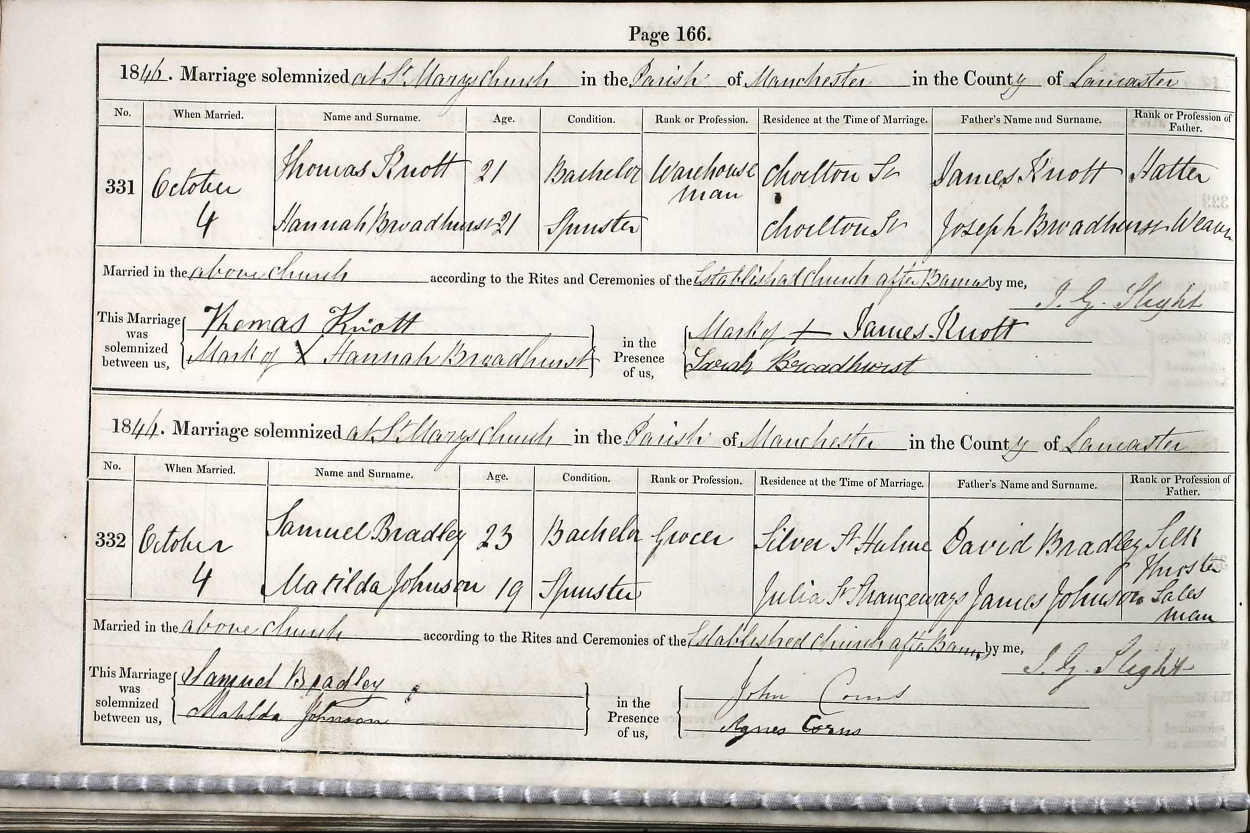 Page 166.
1846. Marriage solemnized at St. Marys Church in the Parish of Manchester in the County of Lancaster
No. When Married. Name and Surname. Age. Condition. Rank or Profession. Residence at the Time of Marriage. Father's Name and Surname. Rank or Profession of Father.
331 October 4 Thomas Knott 21 Bachelor Warehouse man Chorlton St James Knott Hatter
Hannah Broadhurst 21 Spinster Chorlton St Joseph Broadhurst Weaver
Married in the above church according to the Rites and Ceremonies of the Established Church after Banns by me,
J. G. Slight
This Marriage was solemnized between us, Thomas Knott
Mark of X Hannah Broadhurst
in the Presence of us, Mark of + James Knott
Sarah Broadhurst
1846. Marriage solemnized at St. Marys Church in the Parish of Manchester in the County of Lancaster
No. When Married. Name and Surname. Age. Condition. Rank or Profession. Residence at the Time of Marriage. Father's Name and Surname. Rank or Profession of Father.
332 October 4 Samuel Bradley 23 Bachelor Grocer Silver St Hulme David Bradley Silk
Matilda Johnson 19 Spinster Julia St Strangeways James Johnson Sales man
Married in the above church according to the Rites and Ceremonies of the Established Church after Banns by me,
J. G. Slight
This Marriage was solemnized between us, Samuel Bradley
Matilda Johnson
in the Presence of us, John Corns
Agnes Corns